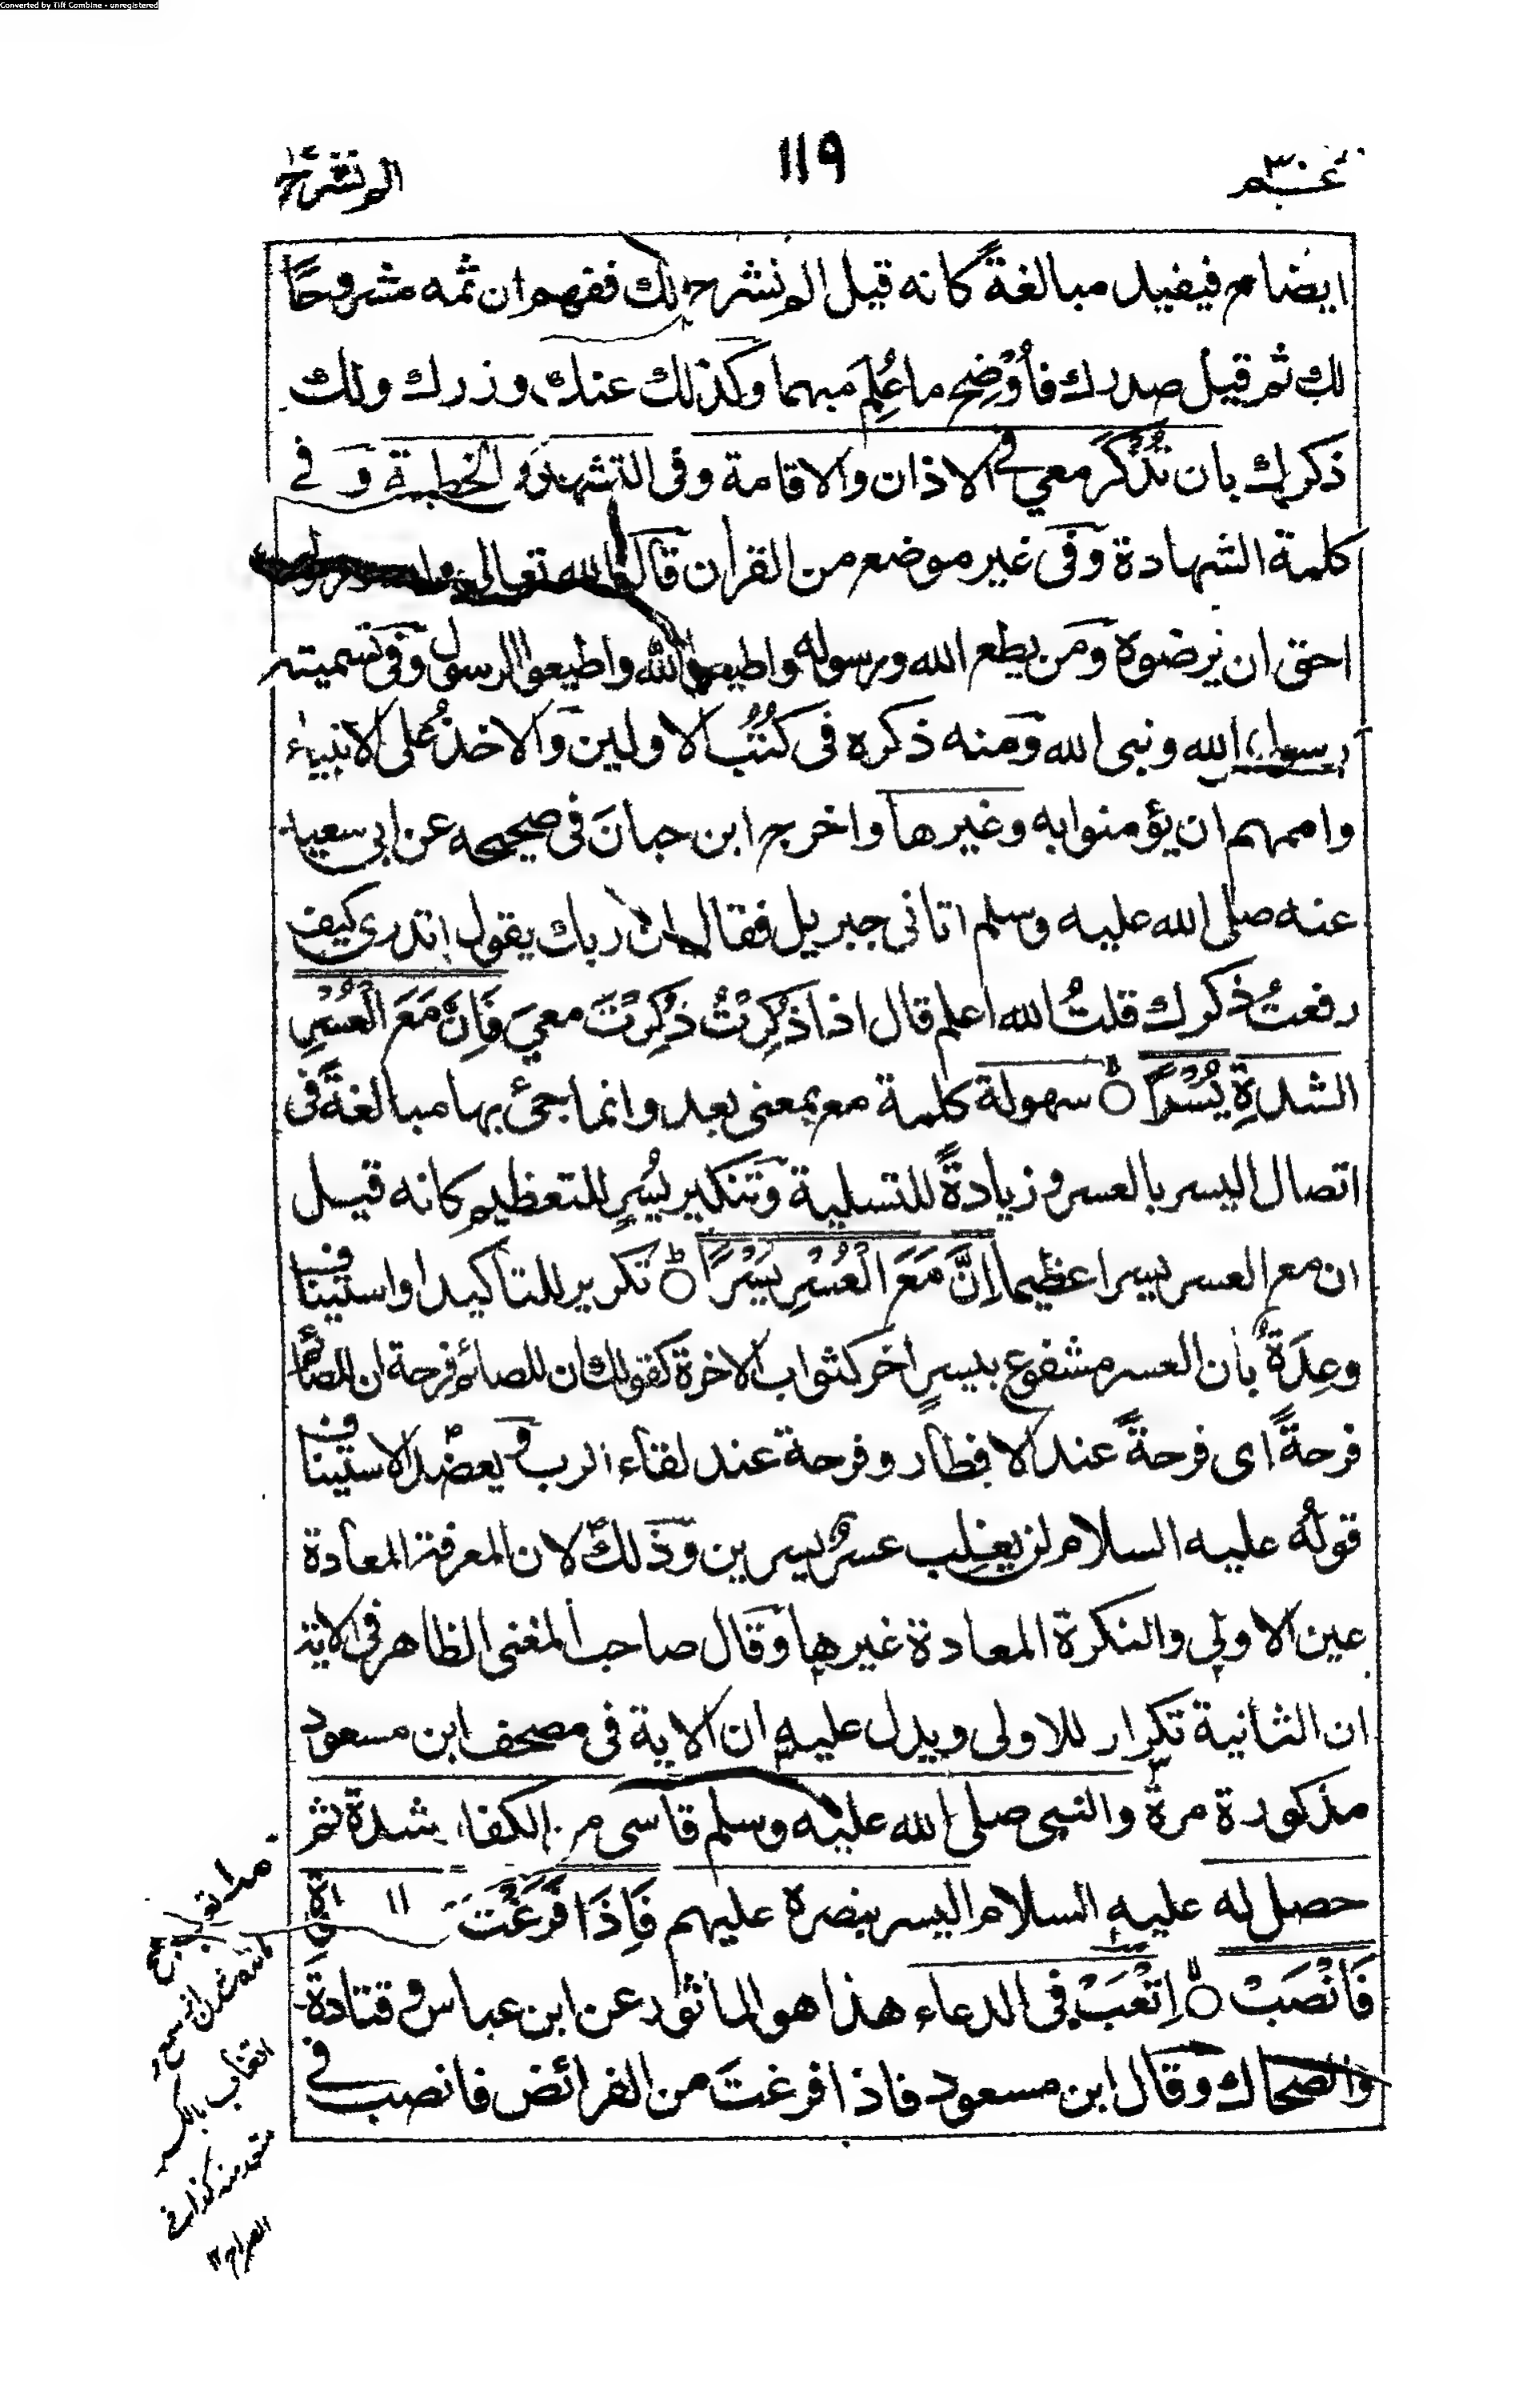 Converted by Tiff Combine - unregistered
عم ٣٠
١١٩
الم نشرح
ايضاح فيفيد مبالغةً كانه قيل الم نشرح لك ففهم ان ثمه مشروحًا
لك ثم قيل صدرك فأوْضِح ما عُلِمَ مبهما وكذلك عنك وزرك ولك
ذكرك بان تُذْكَرَ معي في الاذان والاقامة وفى التشهد والخطبة وفي
كلمة الشهادة وفى غير موضع من القران قال الله تعالى والله ورسوله
احق ان يرضوه ومن يطع الله ورسوله واطيعوا الله واطيعوا الرسول وفى تسميته
رسول الله ونبى الله ومنه ذكره فى كُتُب الاولين والاخذُ على الانبياء
واممهم ان يؤمنوا به وغيرها واخرج ابن حبانَ فى صحيحه عن ابى سعيد
عنه صلى الله عليه وسلم اتانى جبريل فقال ان ربك يقول اتدرى كيف
رفعتُ ذكرك قلتُ الله اعلم قال اذا ذُكِرْتُ ذُكِرْتَ معىَ فَاِنَّ مَعَ الْعُسْرِ
الشدةِ يُسْرًا ۝ سهولة كلمة مع بمعنى بعد وانما جئ بها مبالغةً فى
اتصال اليسر بالعسر و زيادةً للتسلية وتنكير يُسْرٍ للتعظيم كانه قيل
ان مع العسر يسرا عظيما اِنَّ مَعَ الْعُسْرِ يُسْرًا ۝ تكرير للتاكيد او استيناف
وعِدَةٌ بان العسر مشفوع بيسرٍ اخر كثواب الاخرة كقولك ان للصائم فرحة ان للصائم
فرحةً اى فرحةً عند الافطار وفرحة عند لقاء الرب و يعضد الاستيناف
قولُه عليه السلام لن يغلب عسرٌ يسرين وذلك لان المعرفة المعادة
عين الاولى والنكرة المعادة غيرها وقال صاحب المغنى الظاهر فى الاية
ان الثانية تكرار للاولى ويدل عليه ان الاية فى مصحف ابن مسعود
مذكورة مرة والنبى صلى الله عليه وسلم قاسى من الكفار شدة ثم
حصل له عليه السلام اليسر بنصره عليهم فَاِذَا فَرَغْتَ
فَانْصَبْ ۝ اِتْعَبْ فى الدعاء هذا هو الماثور عن ابن عباس و قتادة
والضحاك وقال ابن مسعود فاذا فرغتَ من الفرائض فانصب في